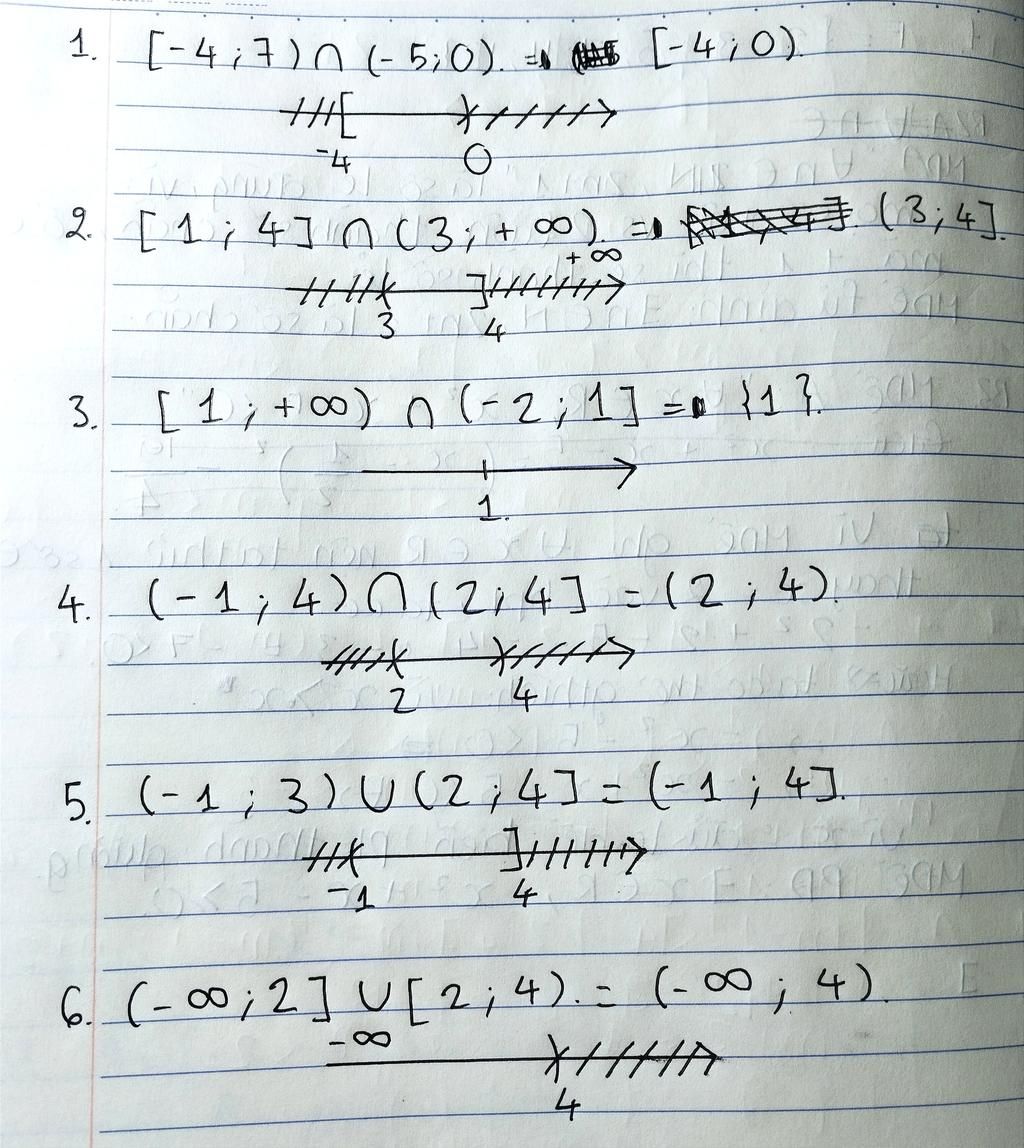 1. [-4;7) ∩ (-5;0). = [-4;0).
-4 0
2. [1;4] ∩ (3;+∞). = (3;4].
+∞
3 4
3. [1;+∞) ∩ (-2;1] = {1}.
1.
4. (-1;4) ∩ (2;4] = (2;4).
2 4
5. (-1;3) ∪ (2;4] = (-1;4].
-1 4
6. (-∞;2] ∪ [2;4). = (-∞;4).
-∞
4